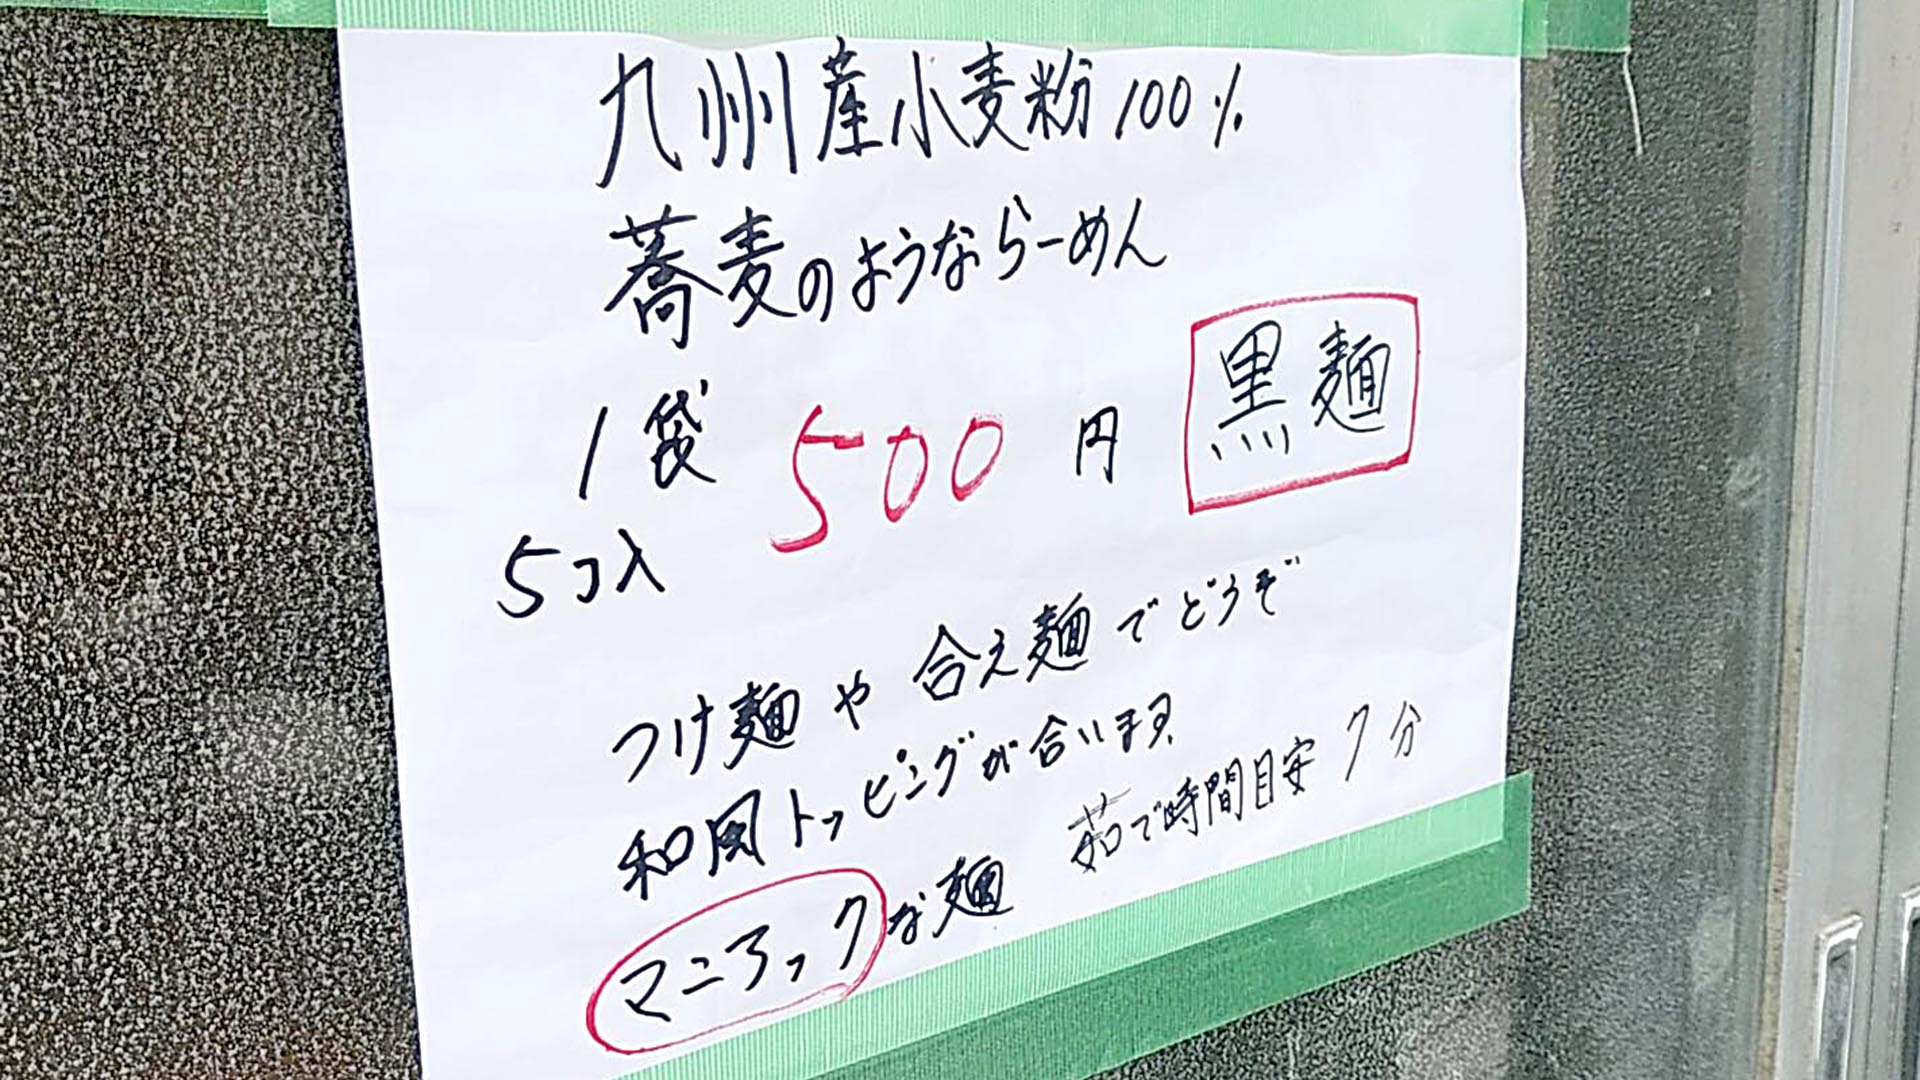 九州産小麦粉100%
蕎麦のようならーめん
1袋 500円 黒麺
5コ入
つけ麺や合え麺でどうぞ
和風トッピングが合います
茹で時間目安7分
マニアックな麺